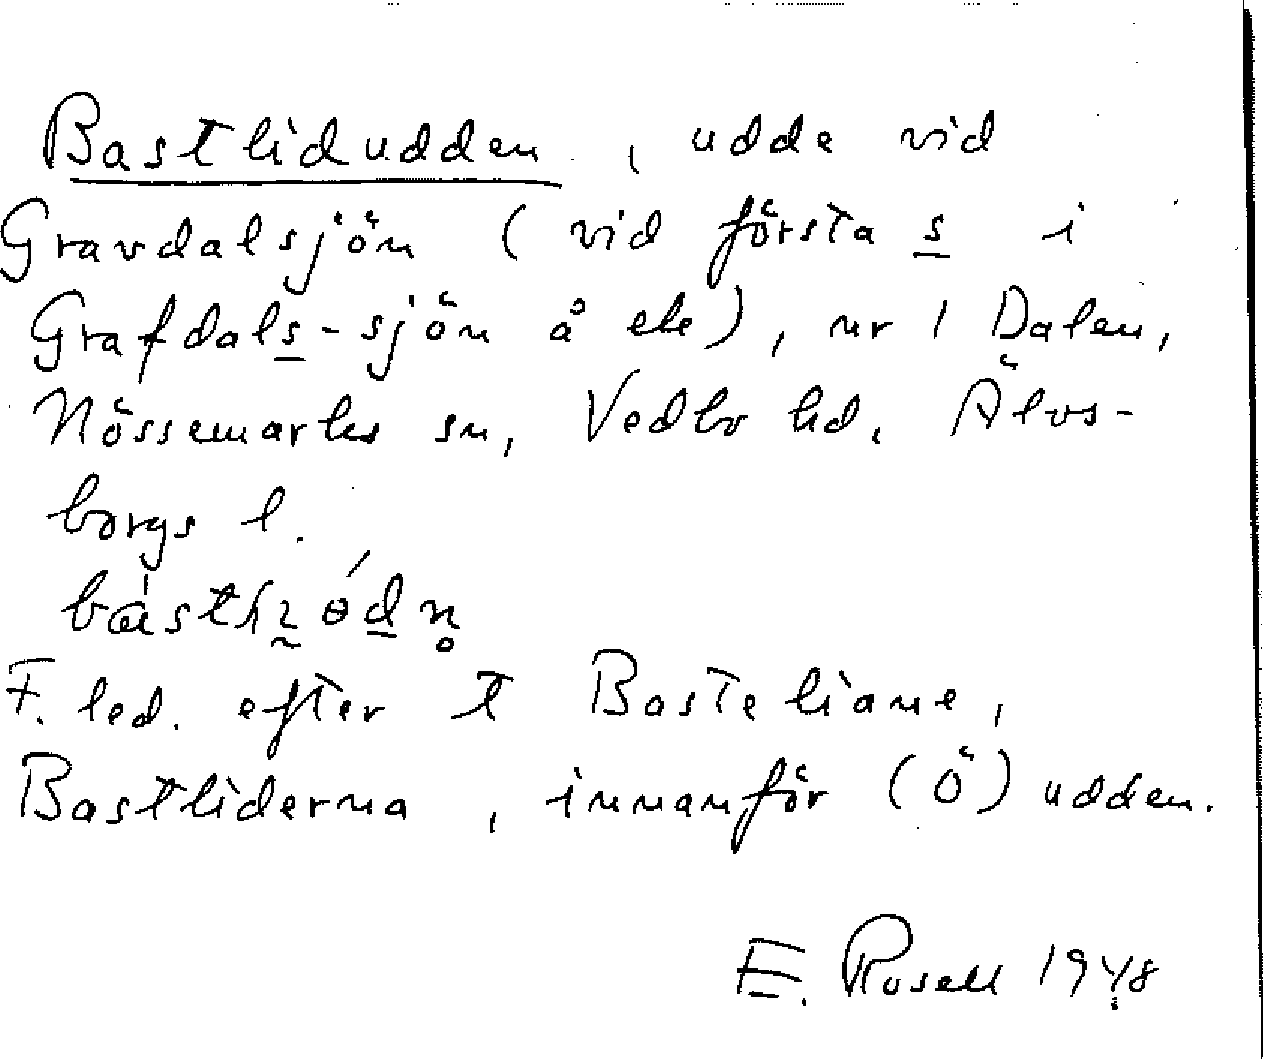 Bastlidudden, udde vid
Gravdalsjön (vid första s i
Grafdals-sjön å ek), nr 1 Dalen,
Nössemarks sn, Vedbo hd, Älvs-
borgs l.
F. led. efter t Basteliane,
Bastliderna, innanför (Ö) udden.
E. Rosell 1948